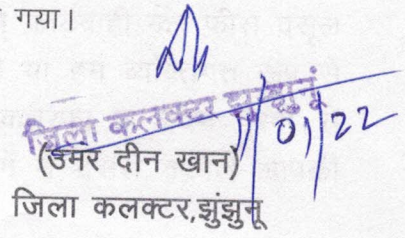 गया।
जिला कलक्टर झुंझुनूं
11/01/22
(उमर दीन खान)
जिला कलक्टर,झुंझुनू